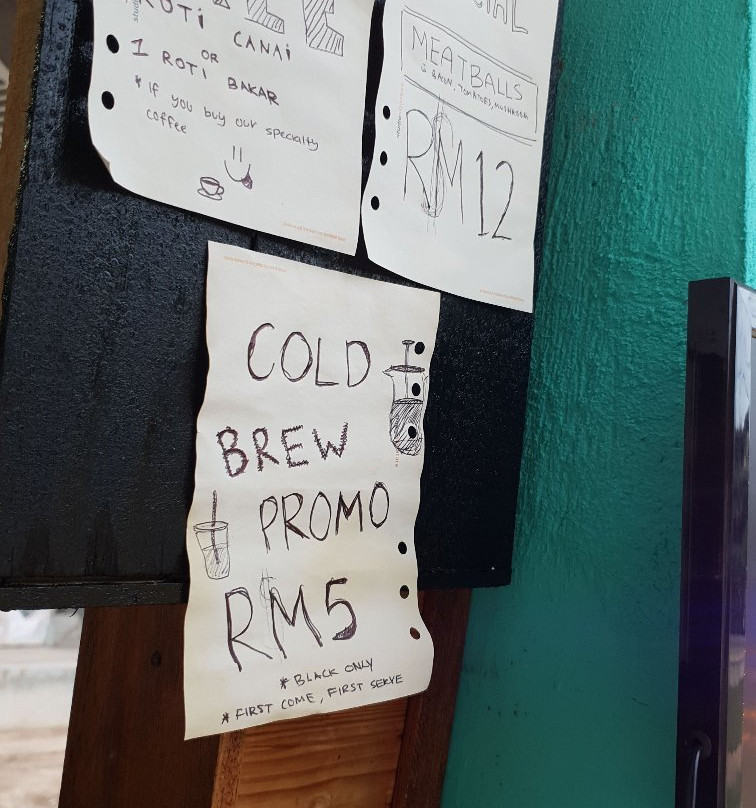 ROTi
CANAi
OR
1 ROTi BAKAR
* If you buy our specialty
coffee
MEATBALLS
RM 12
COLD
BREW
PROMO
RM5
* BLACK ONLY
* FIRST COME, FIRST SERVE